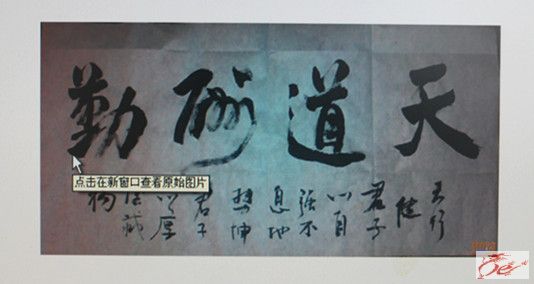 天道酬勤
天行
健
君子
以自
强不
息地
勢坤
君子
以厚
物
点击在新窗口查看原始图片